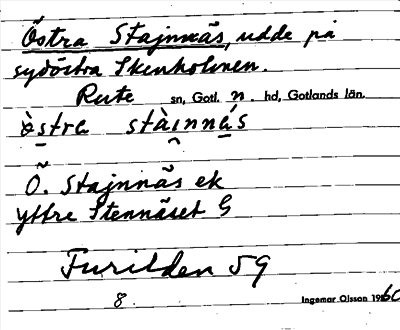 Östra Stajnnäs, udde på
sydöstra Skenholmen.
Rute sn, Gotl. n. hd, Gotlands län.
òstre stàinnás
Ö. Stajnnäs ek
yttre Stennäset G
Furilden 59
8. Ingemar Olsson 1960